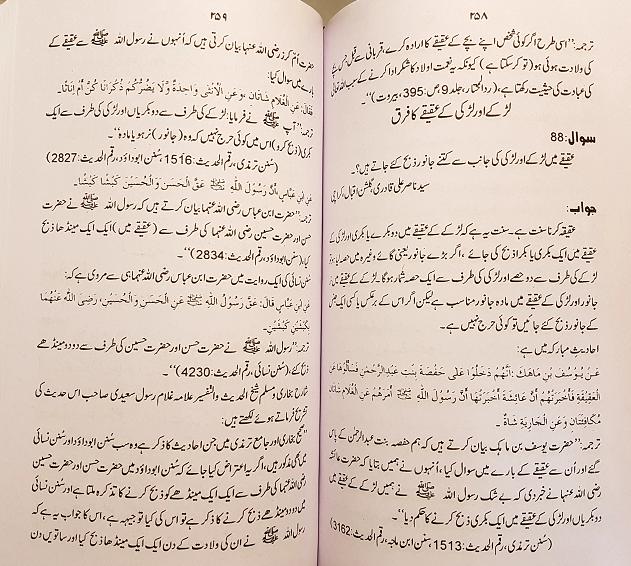 ۲۵۸
ترجمہ:”اسی طرح اگر کوئی شخص اپنے بچے کے عقیقے کا ارادہ کرے، قربانی سے قبل جس بچے
کی ولادت ہوئی ہو (تو کرسکتا ہے) کیونکہ یہ نعمت اولاد کا شکر ادا کرنے کے سبب اللہ تعالیٰ
کی عبادت کی حیثیت رکھتا ہے، (ردالمحتار، جلد 9، ص:395، بیروت)“۔
لڑکے اور لڑکی کے عقیقے کا فرق
سوال:88
عقیقے میں لڑکے اور لڑکی کی جانب سے کتنے جانور کئے جاتے ہیں؟۔
سید ناصر علی قادری، گلشن اقبال، کراچی
جواب:
عقیقہ کرنا سنت ہے۔ سنت یہ ہے کہ لڑکے کے عقیقے میں دو بکرے یا بکری اور لڑکی کے
عقیقے میں ایک بکری یا بکرا ذبح کی جائے، اگر بڑے جانور یعنی گائے وغیرہ میں حصہ
لڑکے کی طرف سے دو حصے اور لڑکی کی طرف سے ایک حصہ شمار ہوگا۔ لڑکے کے عقیقے میں
جانور اور لڑکی کے عقیقے میں مادہ جانور مناسب ہے لیکن اگر اس کے برعکس یا کسی ایک
کے جانور ذبح کئے جائیں تو کوئی حرج نہیں ہے۔
احادیث مبارکہ میں ہے:
عَنْ یُوسُفَ بْنِ مَاهَكَ: اَنَّهُمْ دَخَلُوْا عَلٰی حَفْصَةَ بِنْتِ عَبْدِ الرَّحْمٰنِ فَسَاَلُوْهَا عَنِ
الْعَقِیْقَةِ فَاَخْبَرَتْهُمْ اَنَّ عَائِشَةَ اَخْبَرَتْهَا اَنَّ رَسُوْلَ اللّٰهِ ﷺ اَمَرَهُمْ عَنِ الْغُلَامِ شَاتَانِ
مُكَافِئَتَانِ وَعَنِ الْجَارِیَةِ شَاةٌ۔
ترجمہ:”حضرت یوسف بن ماہک بیان کرتے ہیں کہ ہم حفصہ بنت عبدالرحمٰن کے پاس
گئے اور اُن سے عقیقے کے بارے میں سوال کیا، اُنہوں نے ہمیں بتایا کہ حضرت عائشہ
رضی اللہ عنہا نے خبر دی کہ بے شک رسول اللہ ﷺ نے ہمیں لڑکے کے عقیقے میں
دو بکریاں اور لڑکی کے عقیقے میں ایک بکری ذبح کرنے کا حکم دیا“۔
(سنن ترمذی، رقم الحدیث:1513، سنن ابن ماجہ، رقم الحدیث:3162)
۲۵۹
حضرت اُمّ کرز رضی اللہ عنہا بیان کرتی ہیں کہ اُنہوں نے رسول اللہ ﷺ سے عقیقے کے
بارے میں سوال کیا:
فَقَالَ: عَنِ الْغُلَامِ شَاتَانِ، وَعَنِ الْاُنْثٰی وَاحِدَةٌ وَّلَا یَضُرُّكُمْ ذُكْرَانًا كُنَّ اَمْ اِنَاثًا۔
ترجمہ:”آپ ﷺ نے فرمایا: لڑکے کی طرف سے دو بکریاں اور لڑکی کی طرف سے ایک
بکری (ذبح کرو) اس میں کوئی حرج نہیں کہ وہ (جانور) نر ہو یا مادہ“۔
(سنن ترمذی، رقم الحدیث:1516، سُنن ابوداؤد، رقم الحدیث:2827)
عَنِ ابْنِ عَبَّاسٍ، اَنَّ رَسُوْلَ اللّٰهِ ﷺ عَقَّ الْحَسَنَ وَالْحُسَیْنَ كَبْشًا كَبْشًا۔
ترجمہ:”حضرت ابن عباس رضی اللہ عنہما بیان کرتے ہیں کہ رسول اللہ ﷺ نے حضرت
حسن اور حضرت حسین رضی اللہ عنہما کی طرف سے (عقیقے میں) ایک ایک مینڈھا ذبح
کیا، (سُنن ابوداؤد، رقم الحدیث:2834)“۔
سنن نسائی کی ایک روایت میں حضرت ابن عباس رضی اللہ عنہما ہی سے مروی ہے کہ:
عَنِ ابْنِ عَبَّاسٍ قَالَ: عَقَّ رَسُوْلُ اللّٰهِ ﷺ عَنِ الْحَسَنِ وَالْحُسَیْنِ، رَضِیَ اللّٰهُ عَنْهُمَا
بِكَبْشَیْنِ كَبْشَیْنِ۔
ترجمہ:”رسول اللہ ﷺ نے حضرت حسن اور حضرت حسین کی طرف سے دو دو مینڈھے
ذبح کئے، (سُنن نسائی، رقم الحدیث:4230)“۔
شارح بخاری و مسلم شیخ الحدیث والتفسیر علامہ غلام رسول سعیدی صاحب اس حدیث کی
تشریح فرماتے ہوئے لکھتے ہیں:
”صحیح بخاری اور جامع ترمذی میں جن احادیث کا ذکر ہے وہ سب سُنن ابوداؤد اور سُنن نسائی
میں بھی مذکور ہیں، اگر یہ اعتراض کیا جائے کہ سُنن ابوداؤد میں حضرت حسن اور حضرت حسین
رضی اللہ عنہما کی طرف سے ایک ایک مینڈھے کو ذبح کرنے کا تذکرہ ملتا ہے اور سُنن نسائی
میں دو دو مینڈھے ذبح کرنے کا ذکر ہے تو اس کی کیا توجیہہ ہے، اس کا جواب یہ ہے کہ
رسول اللہ ﷺ نے ان کی ولادت کے دن ایک ایک مینڈھا ذبح کیا اور ساتویں دن